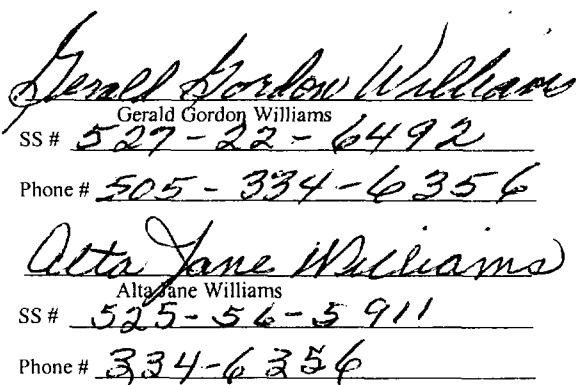 Gerald Gordon Williams
Gerald Gordon Williams
SS # 527-22-6492
Phone # 505-334-6356
Alta Jane Williams
Alta Jane Williams
SS # 525-56-5911
Phone # 334-6356